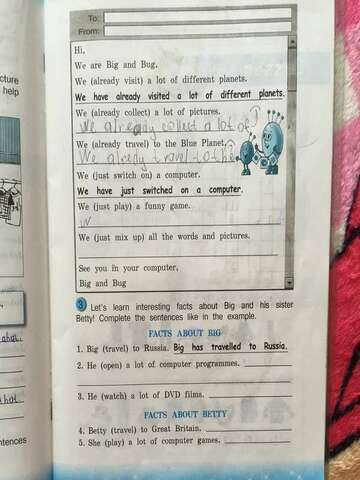 cture
help
To:
From:
Hi,
We are Big and Bug.
We (already visit) a lot of different planets.
We have already visited a lot of different planets.
We (already collect) a lot of pictures.
We already collect a lot of
We (already travel) to the Blue Planet.
We already travel to the
We (just switch on) a computer.
We have just switched on a computer.
We (just play) a funny game.
W
We (just mix up) all the words and pictures.
See you in your computer,
Big and Bug
3 Let's learn interesting facts about Big and his sister
Betty! Complete the sentences like in the example.
FACTS ABOUT BIG
1. Big (travel) to Russia. Big has travelled to Russia.
2. He (open) a lot of computer programmes.
3. He (watch) a lot of DVD films.
FACTS ABOUT BETTY
4. Betty (travel) to Great Britain.
5. She (play) a lot of computer games.
ntences